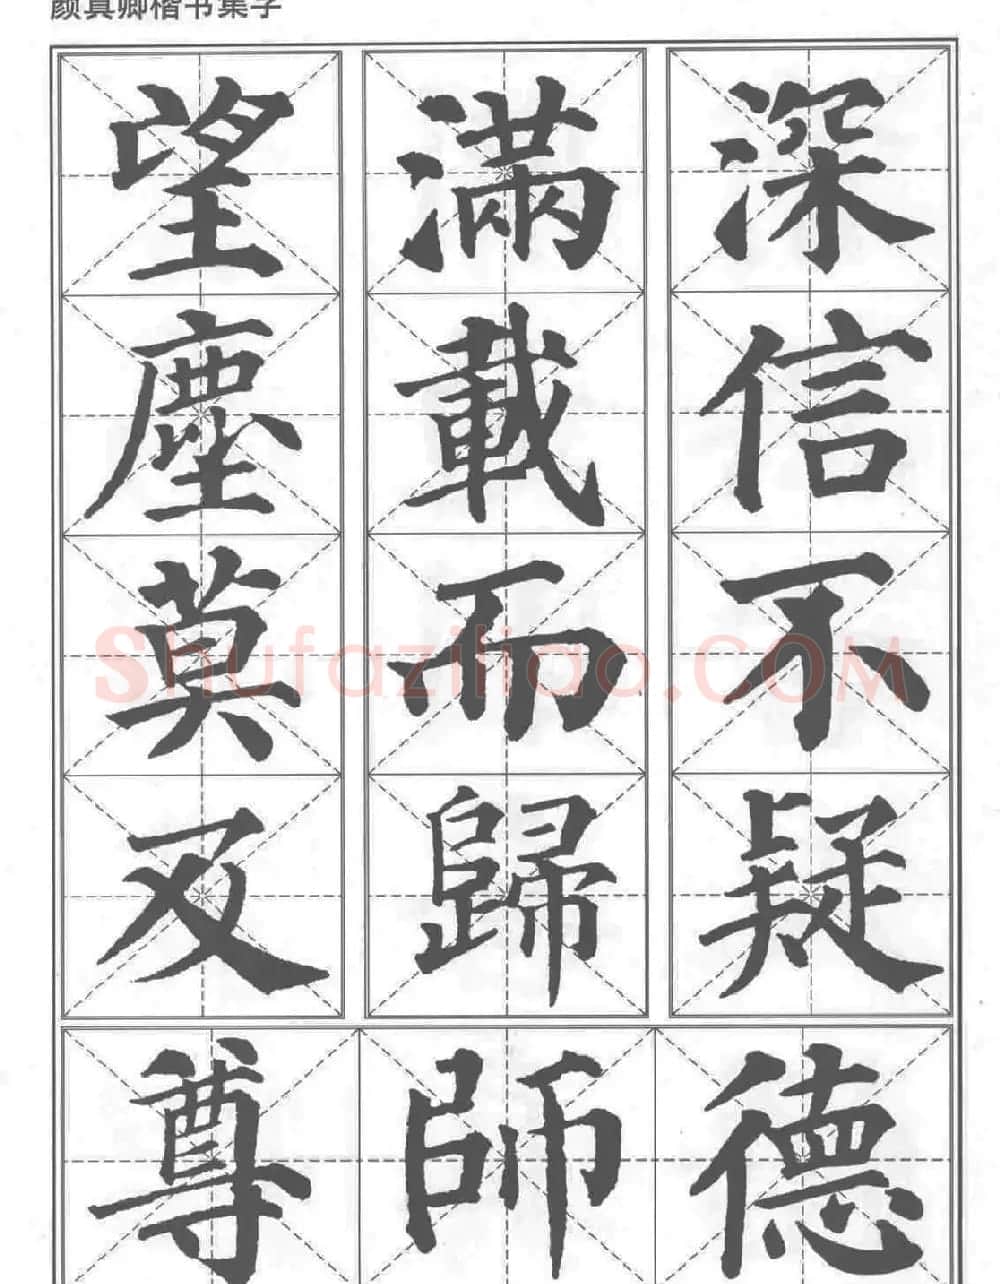 颜真卿楷书集字
深信不疑
滿載而歸
望塵莫及
德師尊
Shufaziliao.COM